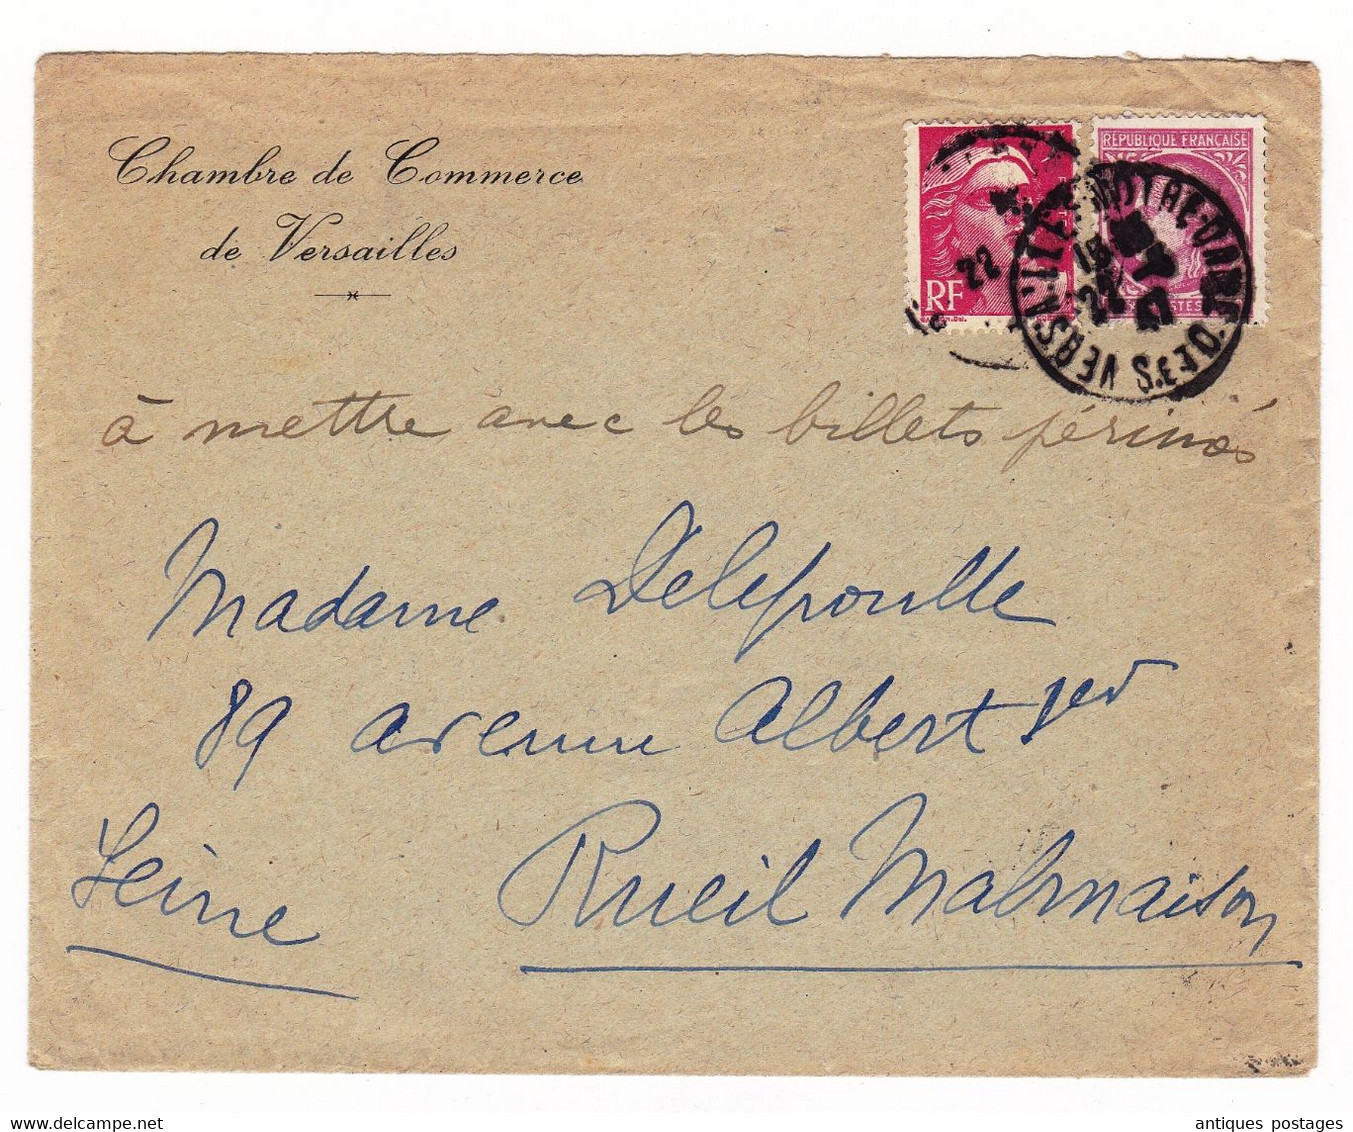 Chambre de Commerce
de Versailles
RÉPUBLIQUE FRANÇAISE
RF
VERSAILLES NOTRE-DAME
S.ET O.
22
22
47
à mettre avec les billets périmés
Madame Delepoulle
89 avenue Albert 1er
Rueil Malmaison
Seine
www.delcampe.net
antiques postages